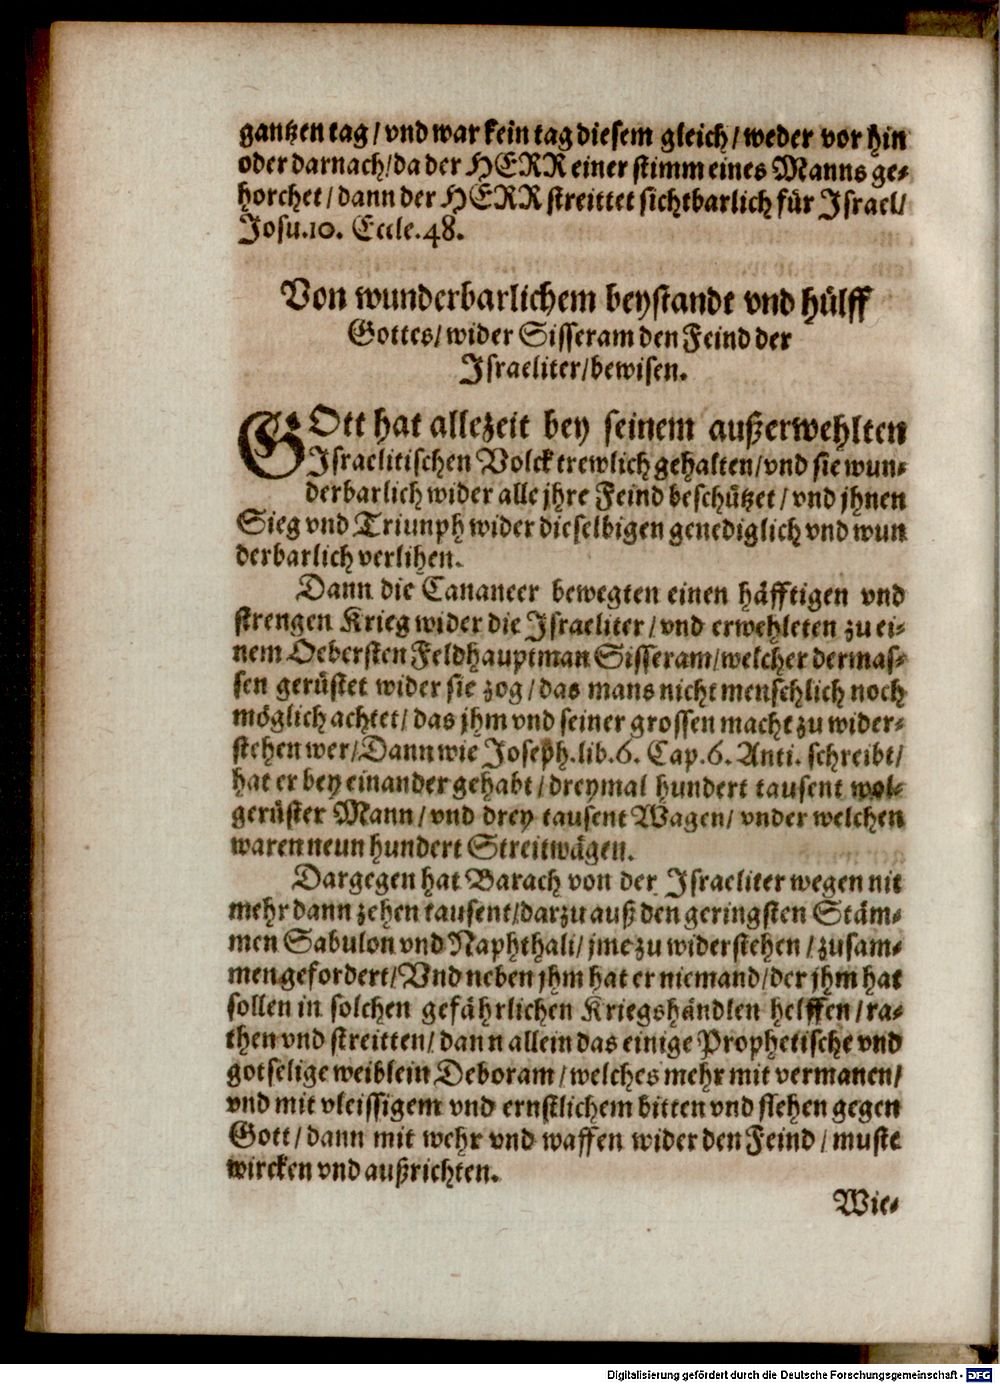 gantzen tag / vnd war kein tag diesem gleich / weder vor hin
oder darnach / da der HERR einer stimm eines Manns ge-
horchet / dann der HERR streittet sichtbarlich für Israel /
Josu.10. Eccle.48.
Von wunderbarlichem beystandt vnd hülff
Gottes / wider Sisseram den Feind der
Israeliter / bewisen.
GOtt hat allezeit bey seinem außerwehlten
Israelitischen Volck trewlich gehalten / vnd sie wun-
derbarlich wider alle jhre Feind beschützet / vnd jhnen
Sieg vnd Triumph wider dieselbigen genediglich vnd wun
derbarlich verlihen.
Dann die Cananeer bewegten einen häfftigen vnd
strengen Krieg wider die Israeliter / vnd erwehleten zu ei-
nem Oebersten Feldhauptman Sisseram / welcher dermas-
sen gerüstet wider sie zog / das mans nicht menschlich noch
möglich achtet / das jhm vnd seiner grossen macht zu wider-
stehen wer / Dann wie Joseph. lib.6. Cap.6. Anti. schreibt /
hat er bey einander gehabt / dreymal hundert tausent wol-
gerüster Mann / vnd drey tausent Wagen / vnder welchen
waren neun hundert Streitwägen.
Dargegen hat Barach von der Israeliter wegen nit
mehr dann zehen tausent / darzu auß den geringsten Stäm-
men Sabulon vnd Naphthali / jme zu widerstehen / zusam-
mengefordert / Vnd neben jhm hat er niemand / der jhm hat
sollen in solchen gefährlichen Kriegshändlen helffen / ra-
then vnd streitten / dann allein das einige Prophetische vnd
gotselige weiblein Deboram / welches mehr mit vermanen /
vnd mit vleissigem vnd ernstlichem bitten vnd flehen gegen
Gott / dann mit wehr vnd waffen wider den Feind / muste
wircken vnd außrichten.
Wie-
Digitalisierung gefördert durch die Deutsche Forschungsgemeinschaft - DFG